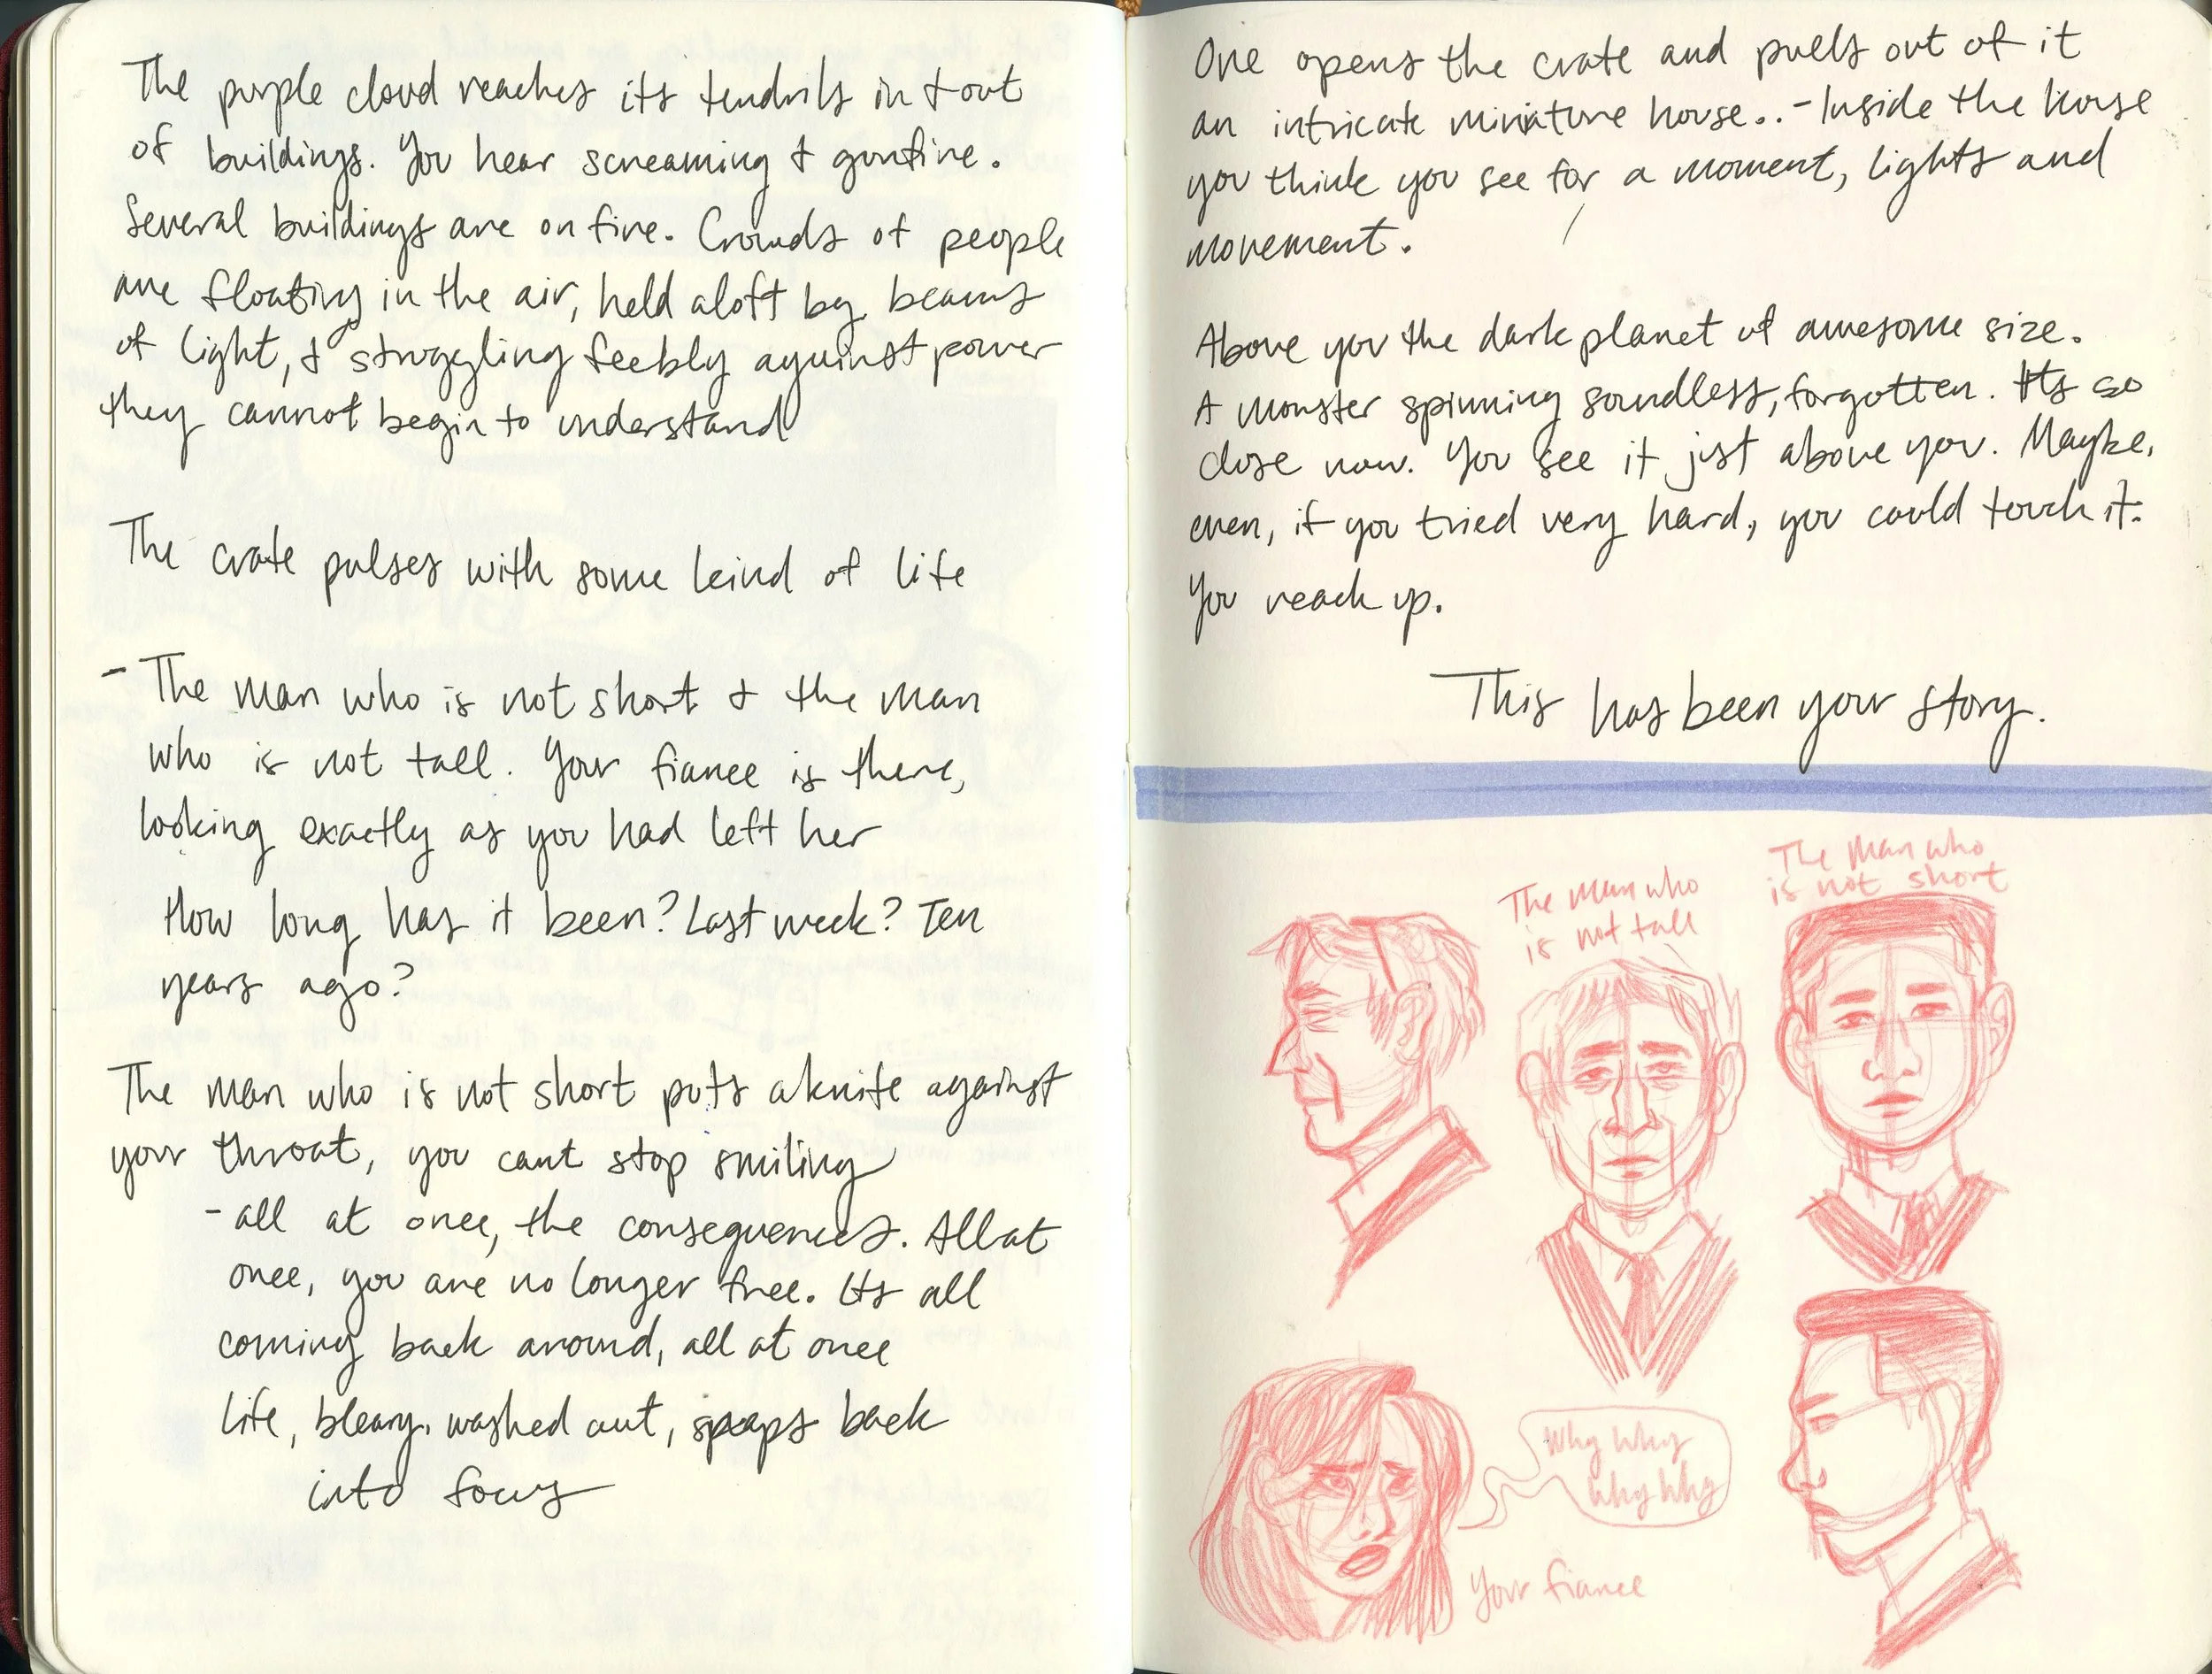 The purple cloud reaches its tendrils in + out
of buildings. You hear screaming + gunfire.
Several buildings are on fire. Crowds of people
are floating in the air, held aloft by beams
of light, + struggling feebly against power
they cannot begin to understand
The crate pulses with some kind of life
- The man who is not short + the man
who is not tall. Your fiancee is there,
looking exactly as you had left her
How long has it been? Last week? Ten
years ago?
The man who is not short puts a knife against
your throat, you cant stop smiling
- all at once, the consequences. All at
once, you are no longer free. Its all
coming back around, all at once
life, bleary, washed out, snaps back
into focus
One opens the crate and pulls out of it
an intricate miniature house.. - Inside the house
you think you see for a moment, lights and
movement.
Above you the dark planet of awesome size.
A monster spinning soundless, forgotten. Its so
close now. You see it just above you. Maybe,
even, if you tried very hard, you could touch it.
You reach up.
This has been your story.
The man who
is not short
The man who
is not tall
Why why
why why
Your fiancee